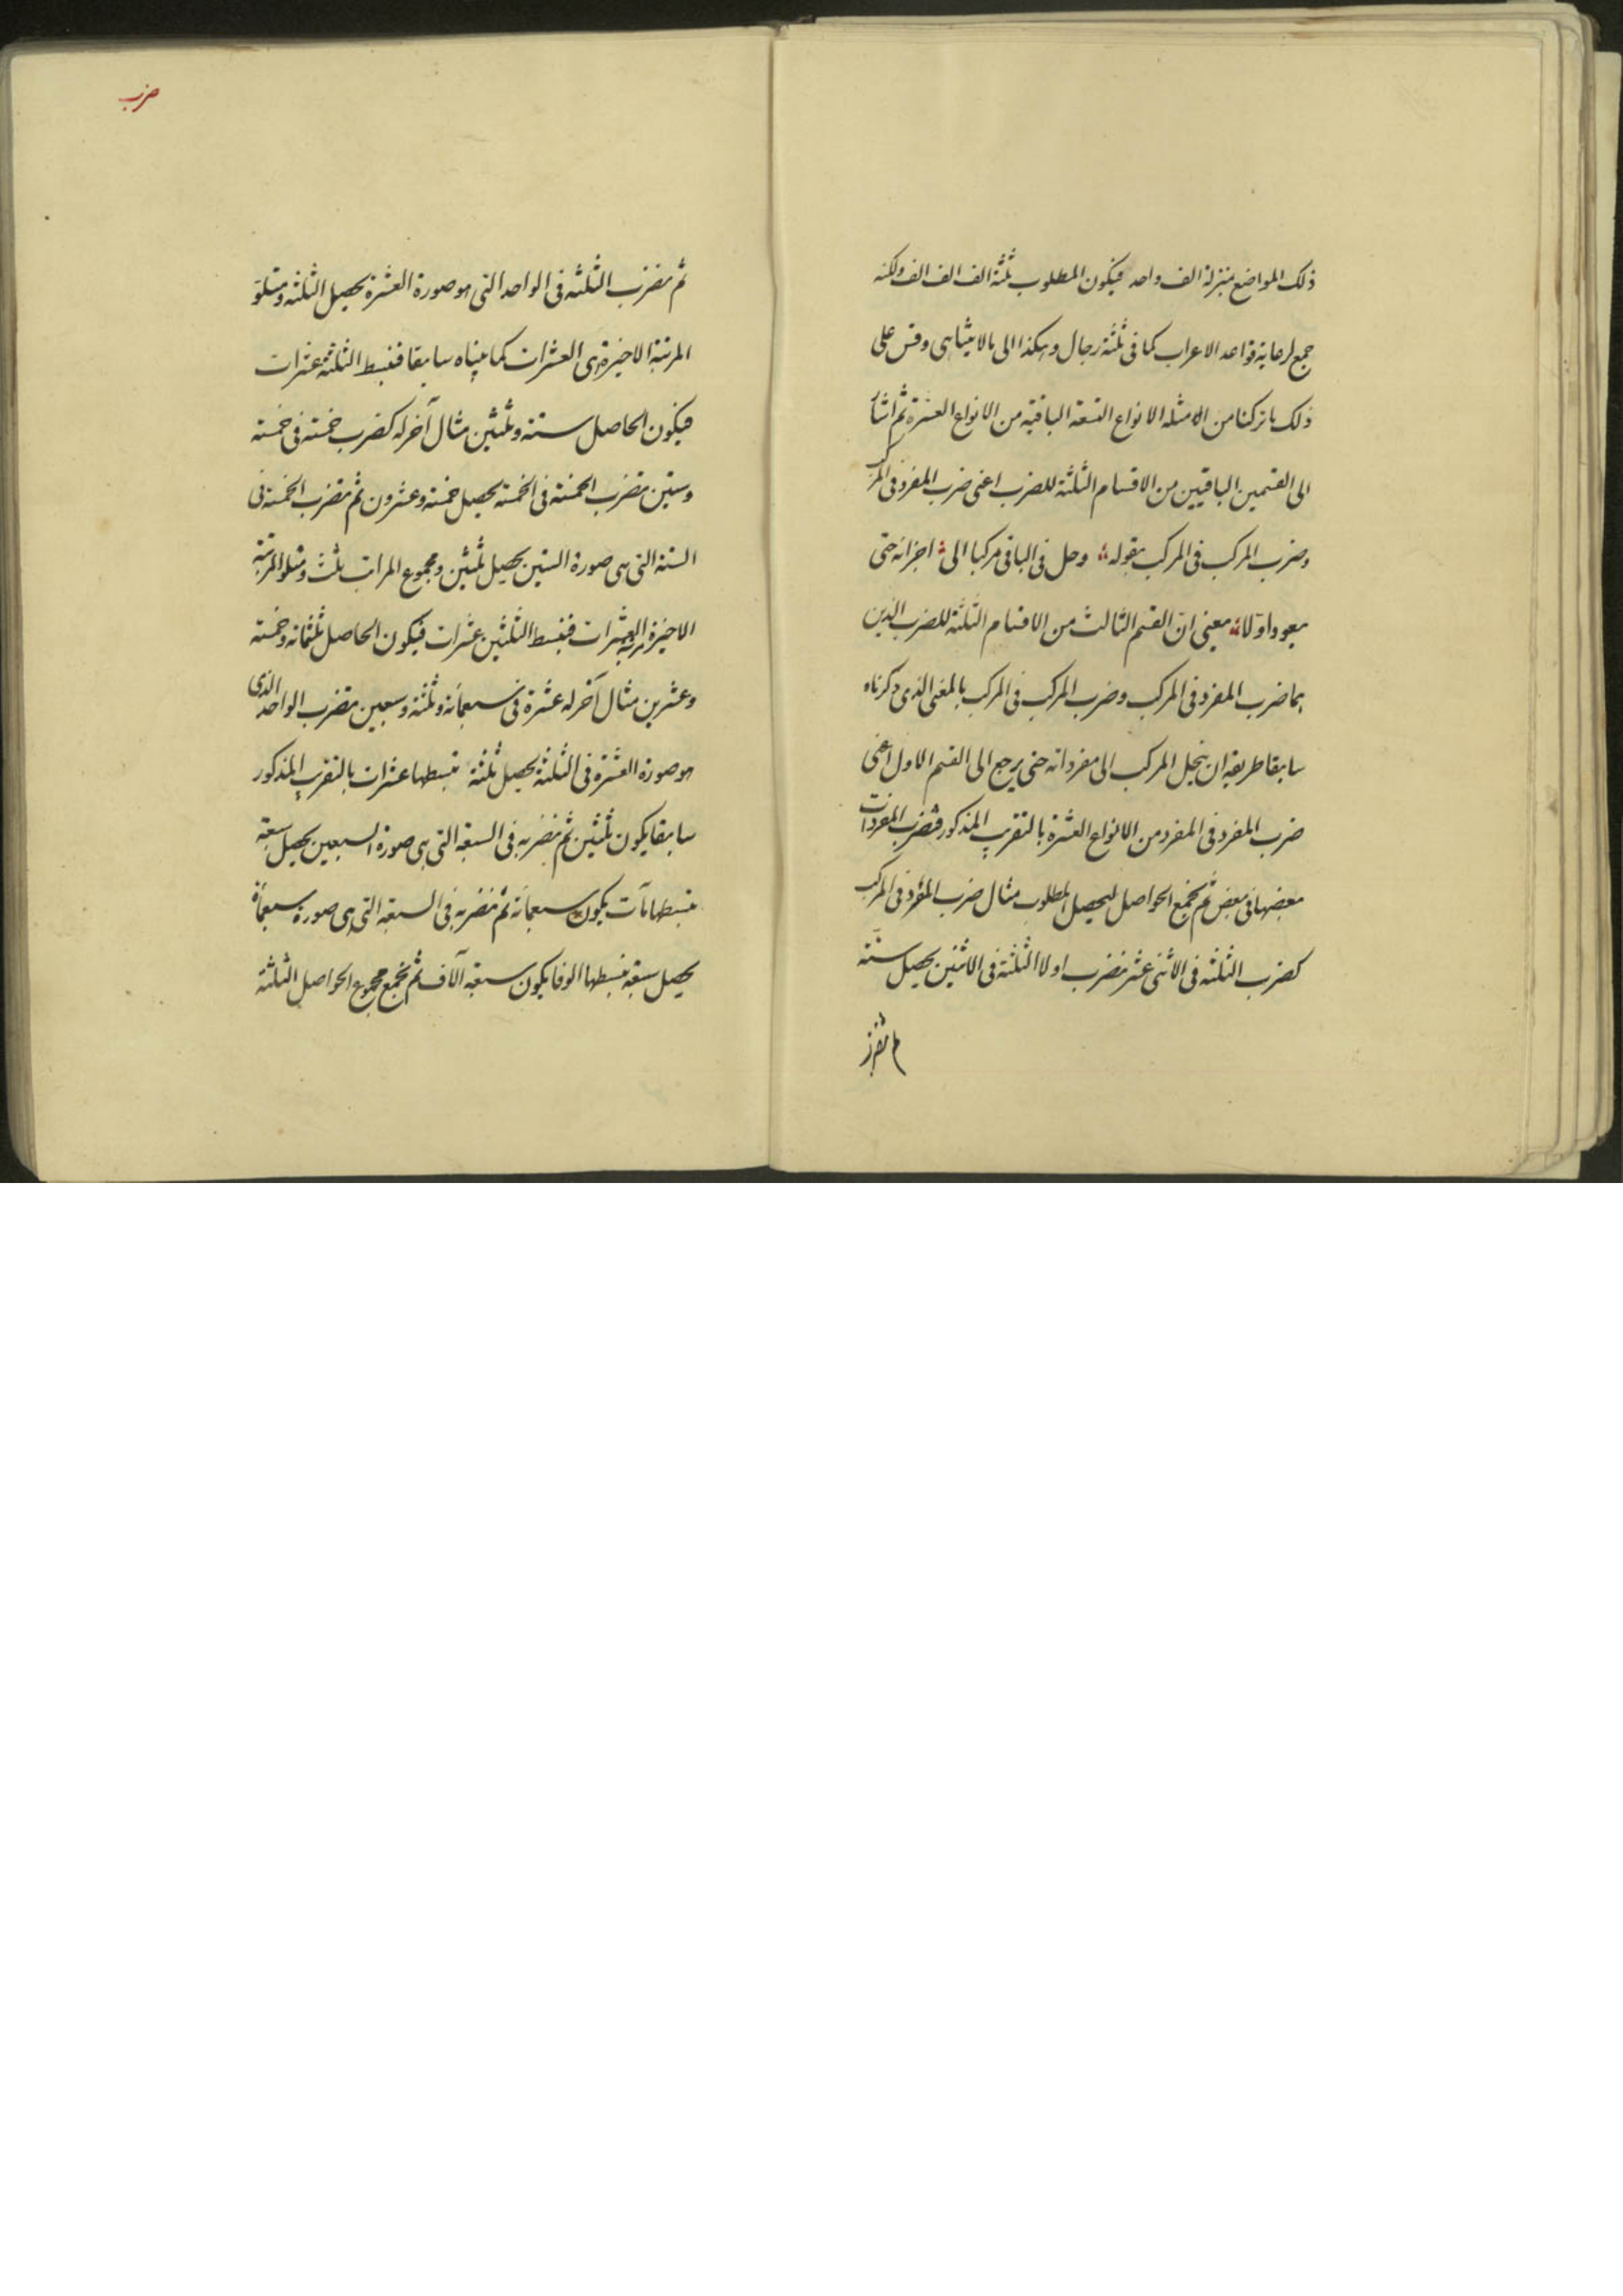 ذلك المواضع بمنزلة الف واحد فيكون المطلوب ثلثة الف الف الف ولكنه
جمع لرعاية قواعد الاعراب كما فى ثلثة رجال وهكذا الى ما لا يتناهى وقس على
ذلك ما تركنا من الامثله الانواع التسعة الباقية من الانواع العشرة ثم اشار
الى القسمين الباقيين من الاقسام الثلثة للضرب اعنى ضرب المفرد فى المركب
وضرب المركب فى المركب بقوله وحل فى الباقى مركبا الى اجزائه حتى
يعود اوّلا يعنى انّ القسم الثالث من الاقسام الثلثة للضرب الذين
هما ضرب المفرد فى المركب وضرب المركب فى المركب بالمعنى الذى ذكرناه
سابقا طريقه ان ينحل المركب الى مفرداته حتى يرجع الى القسم الاول اعنى
ضرب المفرد فى المفرد من الانواع العشرة بالتقريب المذكور فتضرب المفردات
بعضها فى بعض ثم تجمع الحواصل ليحصل المطلوب مثال ضرب المفرد فى المركب
كضرب الثلثه فى الاثنى عشر نضرب اولا الثلثة فى الاثنين يحصل ستة
ثم نضرب
ضرب
ثم نضرب الثلثه فى الواحد التى هو صورة العشرة يحصل الثلثه ومتلوّ
المرتبة الاخيرة هى العشرات كما بيناه سابقا فنبسط الثلثة عشرات
فيكون الحاصل ستة وثلثين مثال آخر له كضرب خمسة فى خمسة
وستين نضرب الخمسة فى الخمسة يحصل خمسة وعشرون ثم نضرب الخمسة فى
الستة التى هى صورة الستين يحصل ثلثين ومجموع المراتب ثلث ومتلو المرتبة
الاخيرة العشرات فنبسط الثلثين عشرات فيكون الحاصل ثلثمائة وخمسة
وعشرين مثال آخر له عشرة فى سبعمائة وثلثة وسبعين نضرب الواحد الذى
هو صورة العشرة فى الثلثة يحصل ثلثة نبسطها عشرات بالتقريب المذكور
سابقا يكون ثلثين ثم نضربه فى السبعة التى هى صورة السبعين يحصل سبعة
نبسطها مآت يكون سبعمائة ثم نضربه فى السبعة التى هى صورة سبعمأة
يحصل سبعة نبسطها الوفا يكون سبعة آلاف ثم نجمع مجموع الحواصل الثلثة